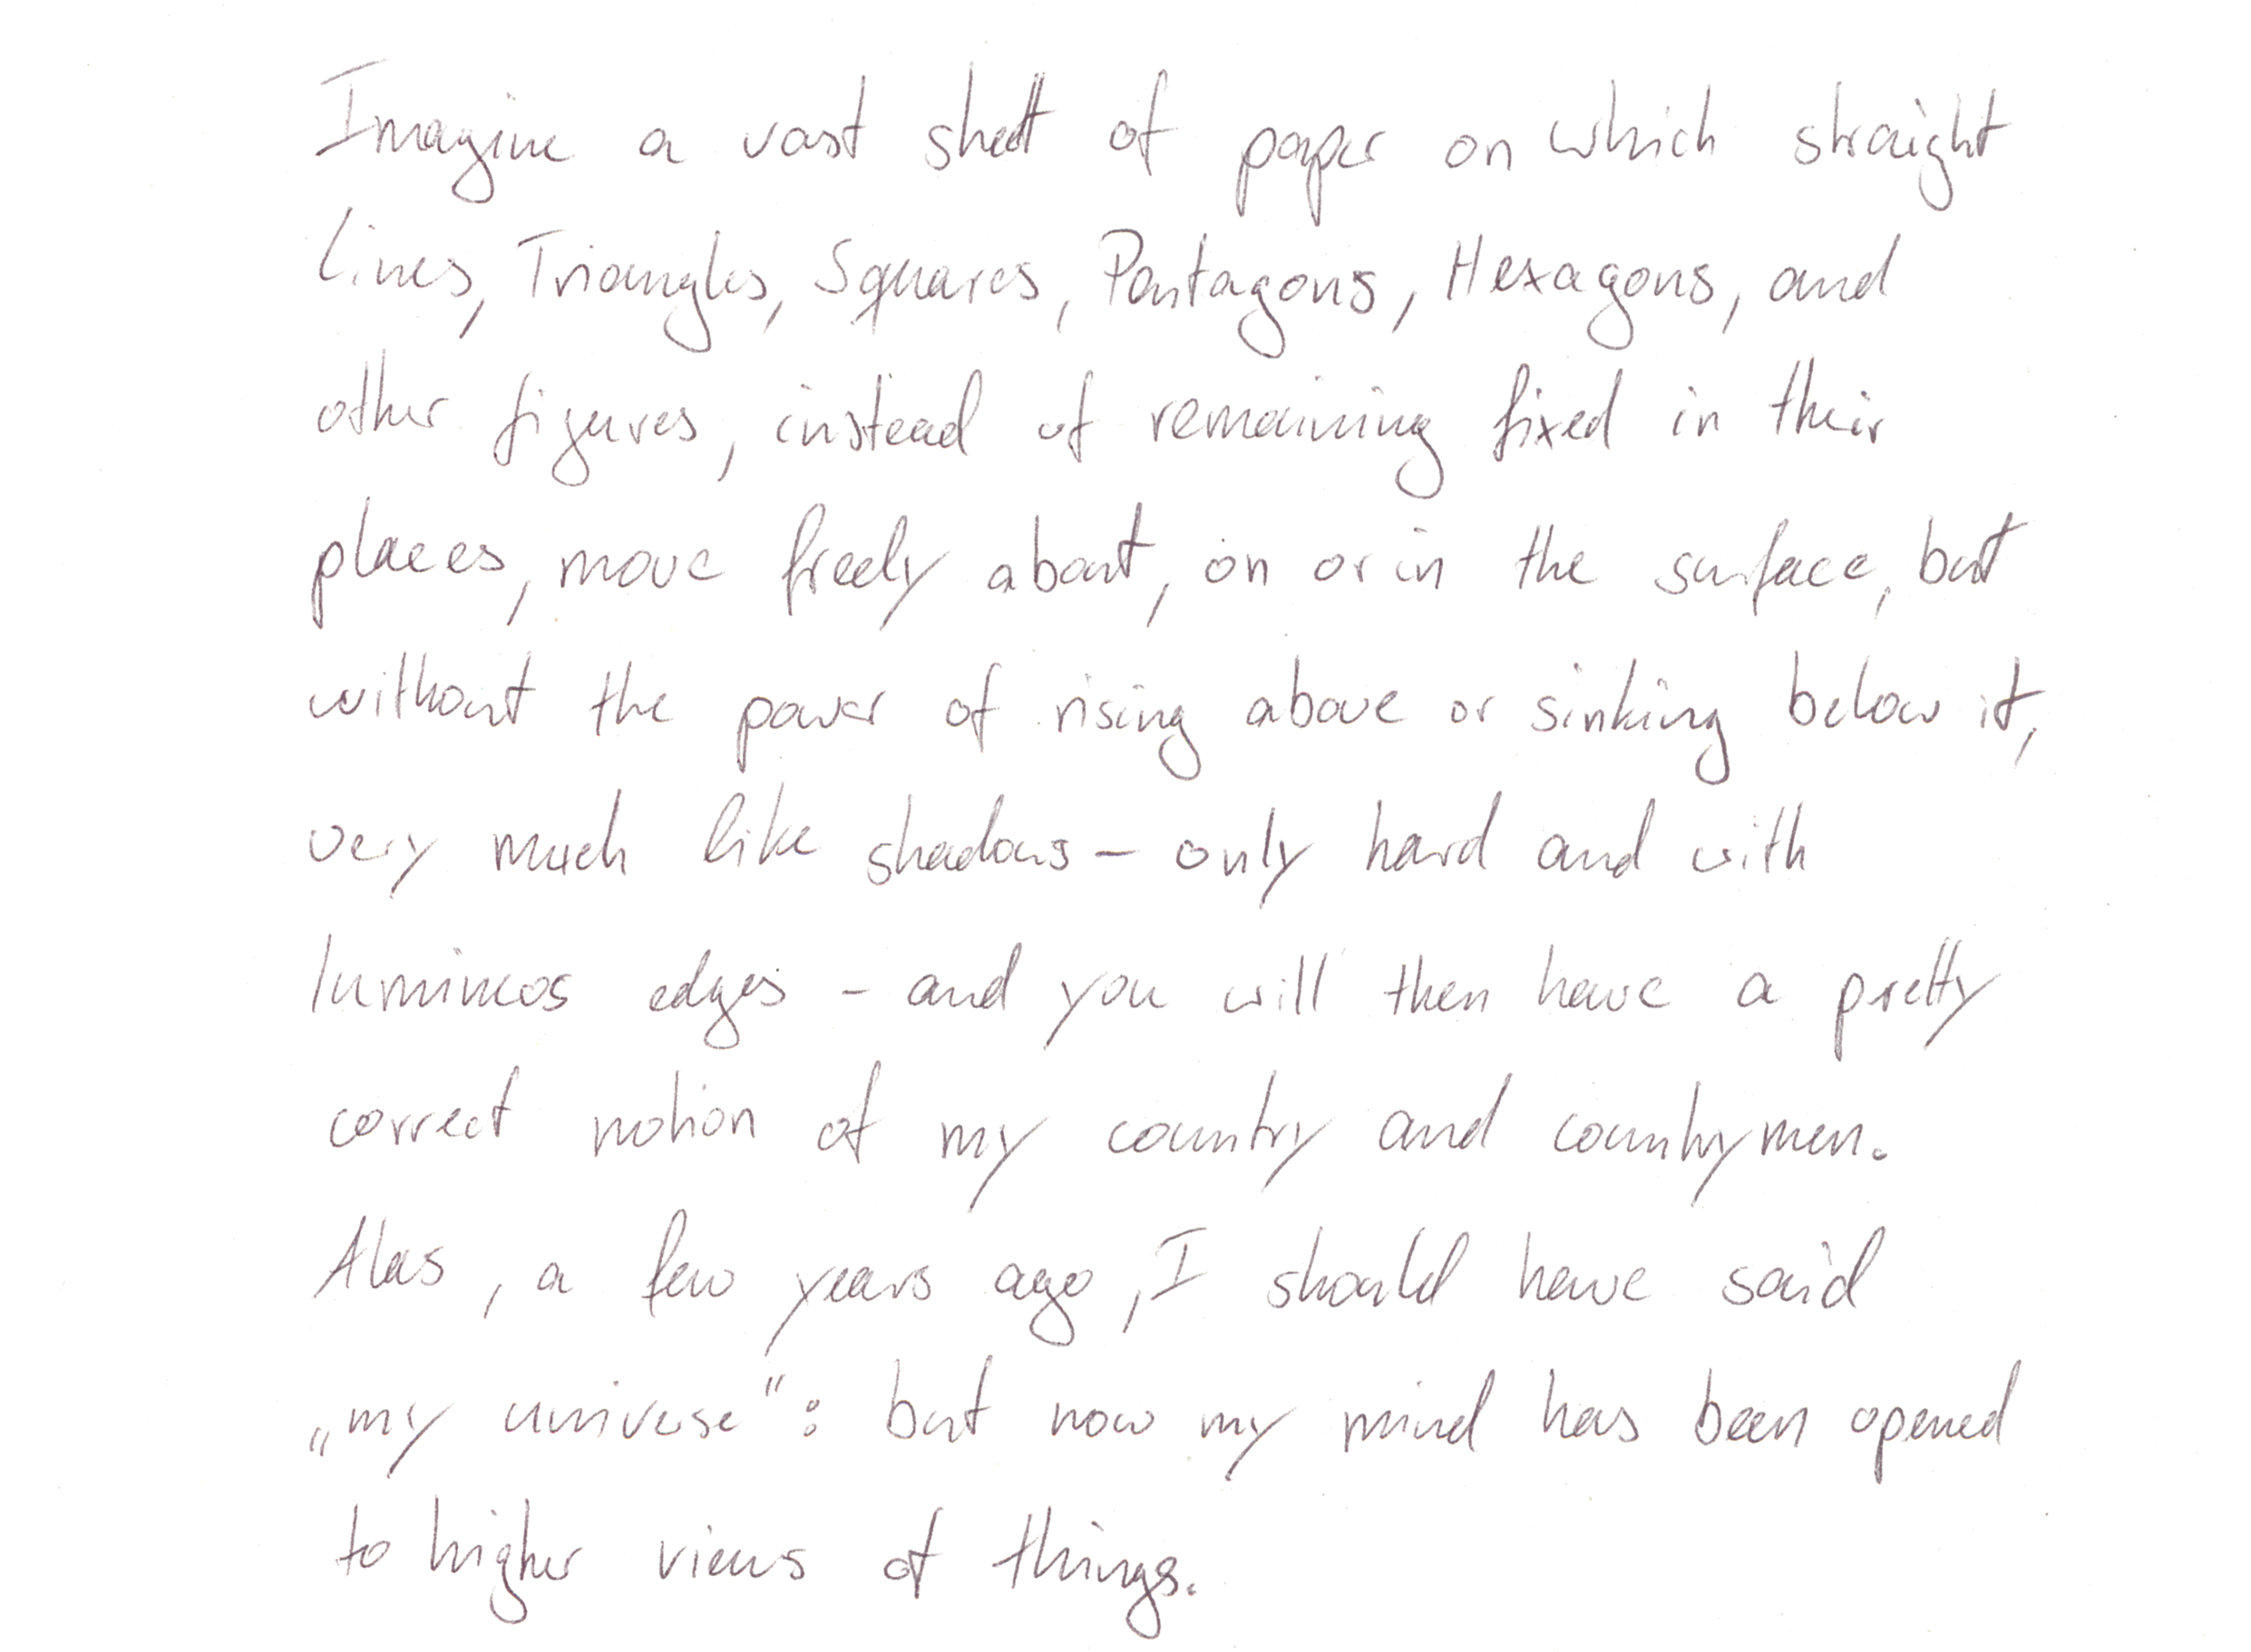 Imagine a vast sheet of paper on which straight
lines, Triangles, Squares, Pentagons, Hexagons, and
other figures, instead of remaining fixed in their
places, move freely about, on or in the surface, but
without the power of rising above or sinking below it,
very much like shadows – only hard and with
luminous edges – and you will then have a pretty
correct notion of my country and countrymen.
Alas, a few years ago, I should have said
„my universe“: but now my mind has been opened
to higher views of things.